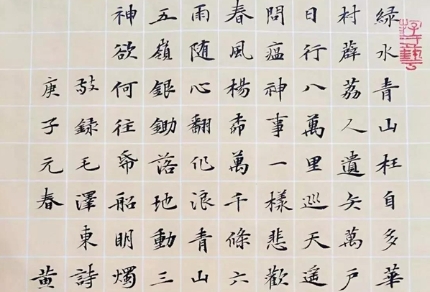 綠水青山枉自多華
村薜荔人遺矢萬戶
日行八萬里巡天遙
問瘟神事一樣悲歡
春風楊柳萬千條六
雨随心翻作浪青山
五嶺銀鋤落地動三
神欲何往帋船明燭
敬録毛澤東詩
庚子元春 黄